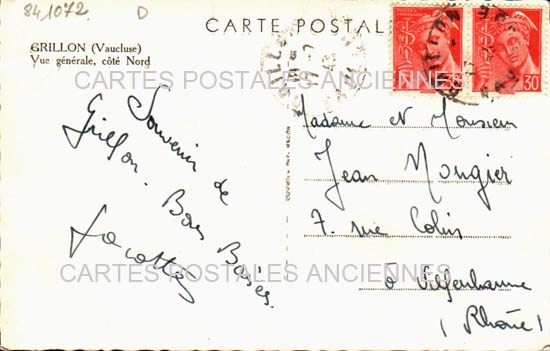 841072 D
CARTE POSTALE
GRILLON (Vaucluse)
Vue générale, côté Nord
30 30
CARTES POSTALES ANCIENNES
Souvenir de
Grillon. Bons Baisers.
Madame et Monsieur
Jean Mongier
7. rue Colin
à Villeurbanne
(Rhône)
CARTES POSTALES ANCIENNES